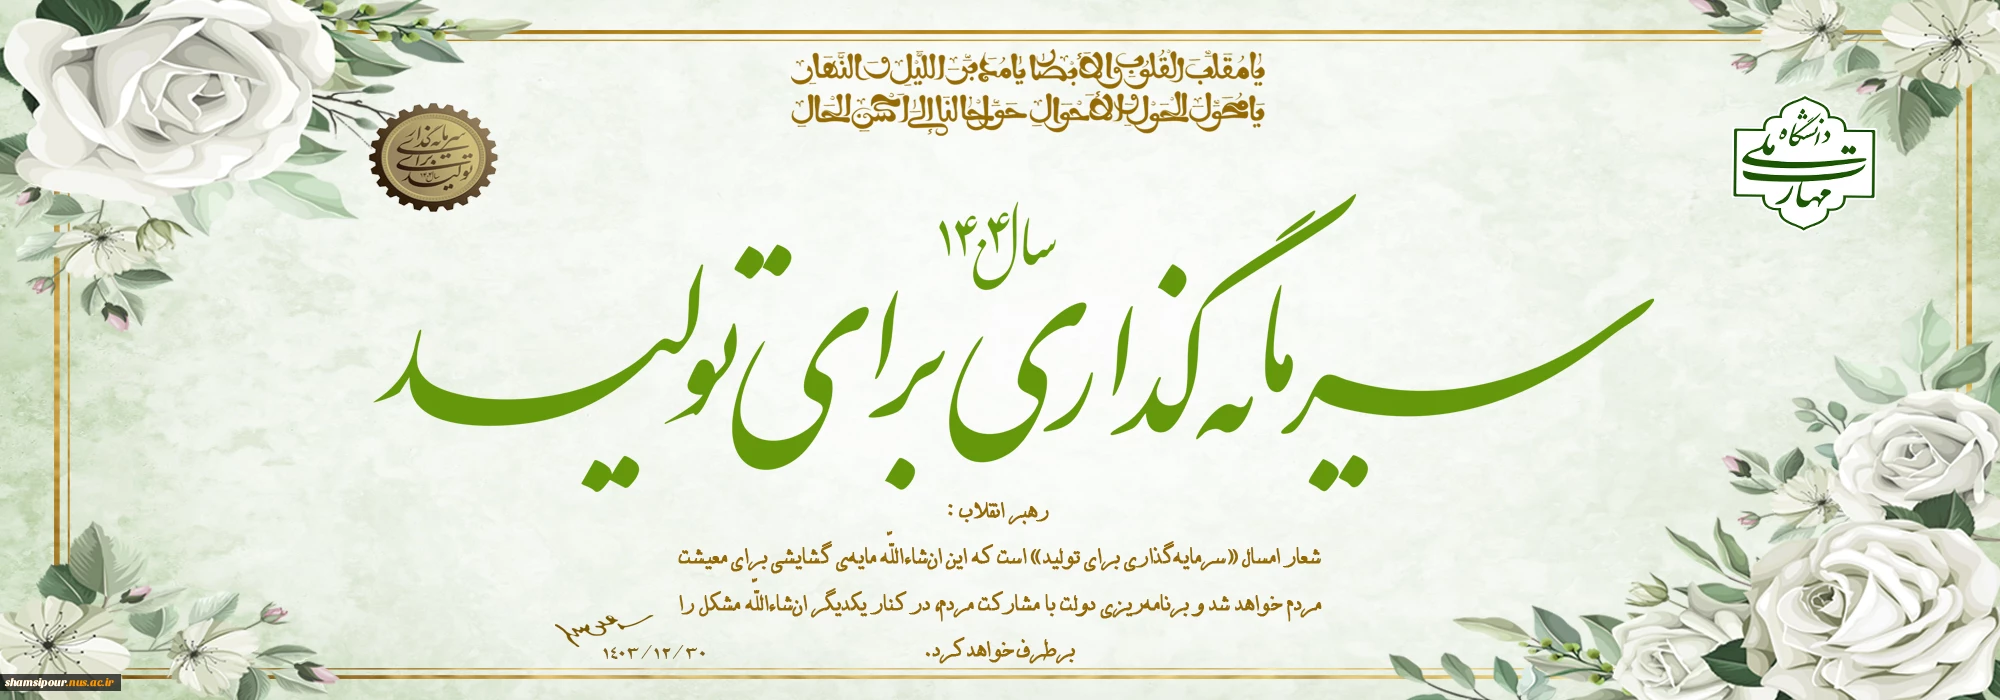 یا مُقَلِّبَ القُلُوبِ وَالأَبْصارِ یا مُدَبِّرَ اللَّیْلِ وَ النَّهارِ
یا مُحَوِّلَ الحَوْلِ وَالأَحْوالِ حَوِّلْ حالَنا إِلی أَحْسَنِ الحالِ
سرمایه‌گذاری
برای
تولید
سال ۱۴۰۴
دانشگاه
ملی
مهارت
سال ۱۴۰۴
سرمایه گذاری برای تولید
رهبر انقلاب :
شعار امسال «سرمایه‌گذاری برای تولید» است که این ان‌شاءاللّه مایه‌ی گشایشی برای معیشت
مردم خواهد شد و برنامه‌ریزی دولت با مشارکت مردم، در کنار یکدیگر ان‌شاءاللّه مشکل را
برطرف خواهد کرد.
۱۴۰۳/۱۲/۳۰
shamsipour.nus.ac.ir